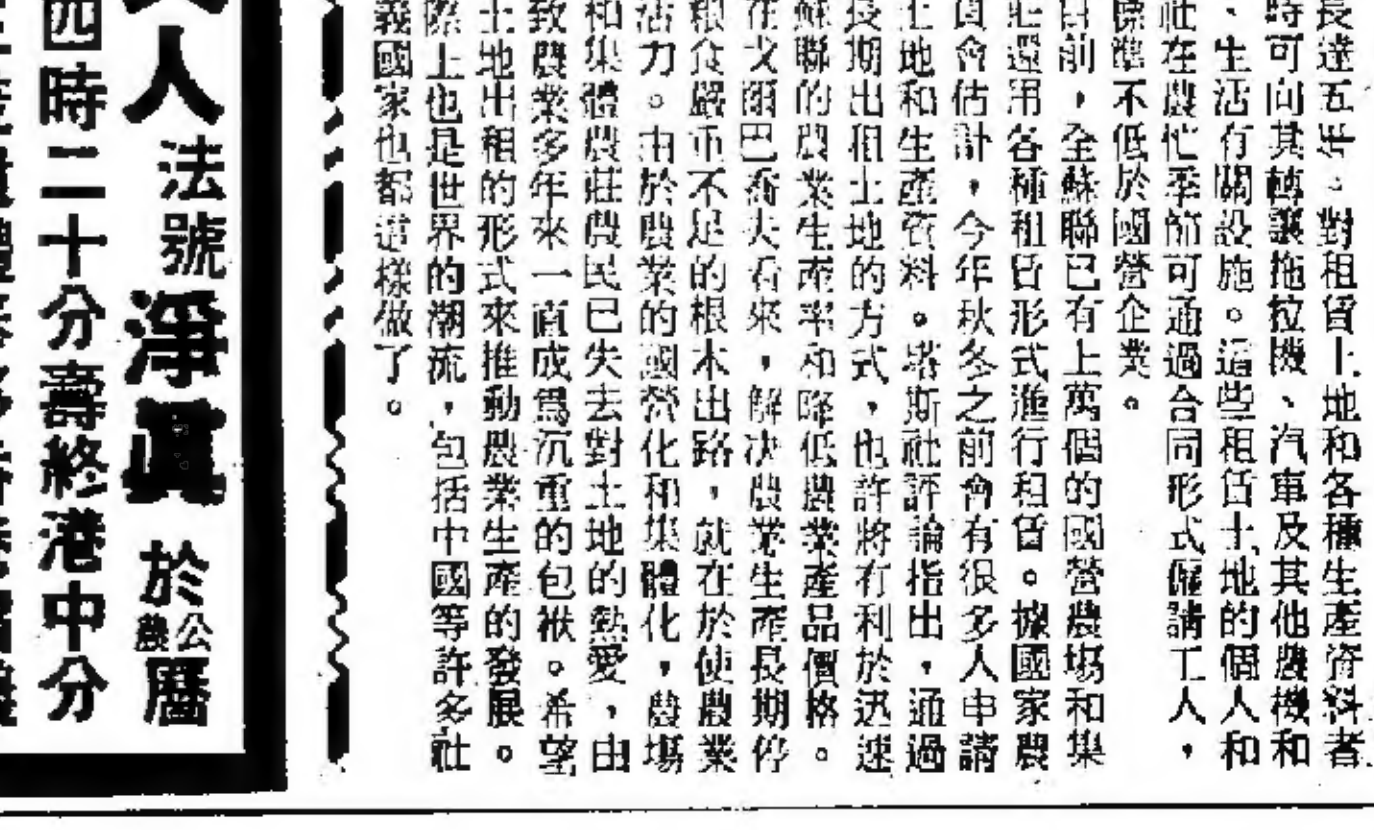 長達五年。對租賃土地和各種生產資料者
時可向其轉讓拖拉機、汽車及其他農機和
、生活有關設施。這些租賃土地的個人和
社在農忙季節可通過合同形式僱請工人，
標準不低於國營企業。
目前，全蘇聯已有上萬個的國營農場和集
莊還用各種租賃形式進行租賃。據國家農
員會估計，今年秋冬之前會有很多人申請
土地和生產資料。塔斯社評論指出，通過
長期出租土地的方式，也許將有利於迅速
蘇聯的農業生產率和降低農業產品價格。
在戈爾巴喬夫看來，解決農業生產長期停
糧食嚴重不足的根本出路，就在於使農業
活力。由於農業的國營化和集體化，農場
和集體農莊農民已失去對土地的熱愛，由
致農業多年來一直成為沉重的包袱。希望
土地出租的形式來推動農業生產的發展。
際上也是世界的潮流，包括中國等許多社
義國家也都這樣做了。
人法號淨眞於公農曆
四時二十分壽終港中分